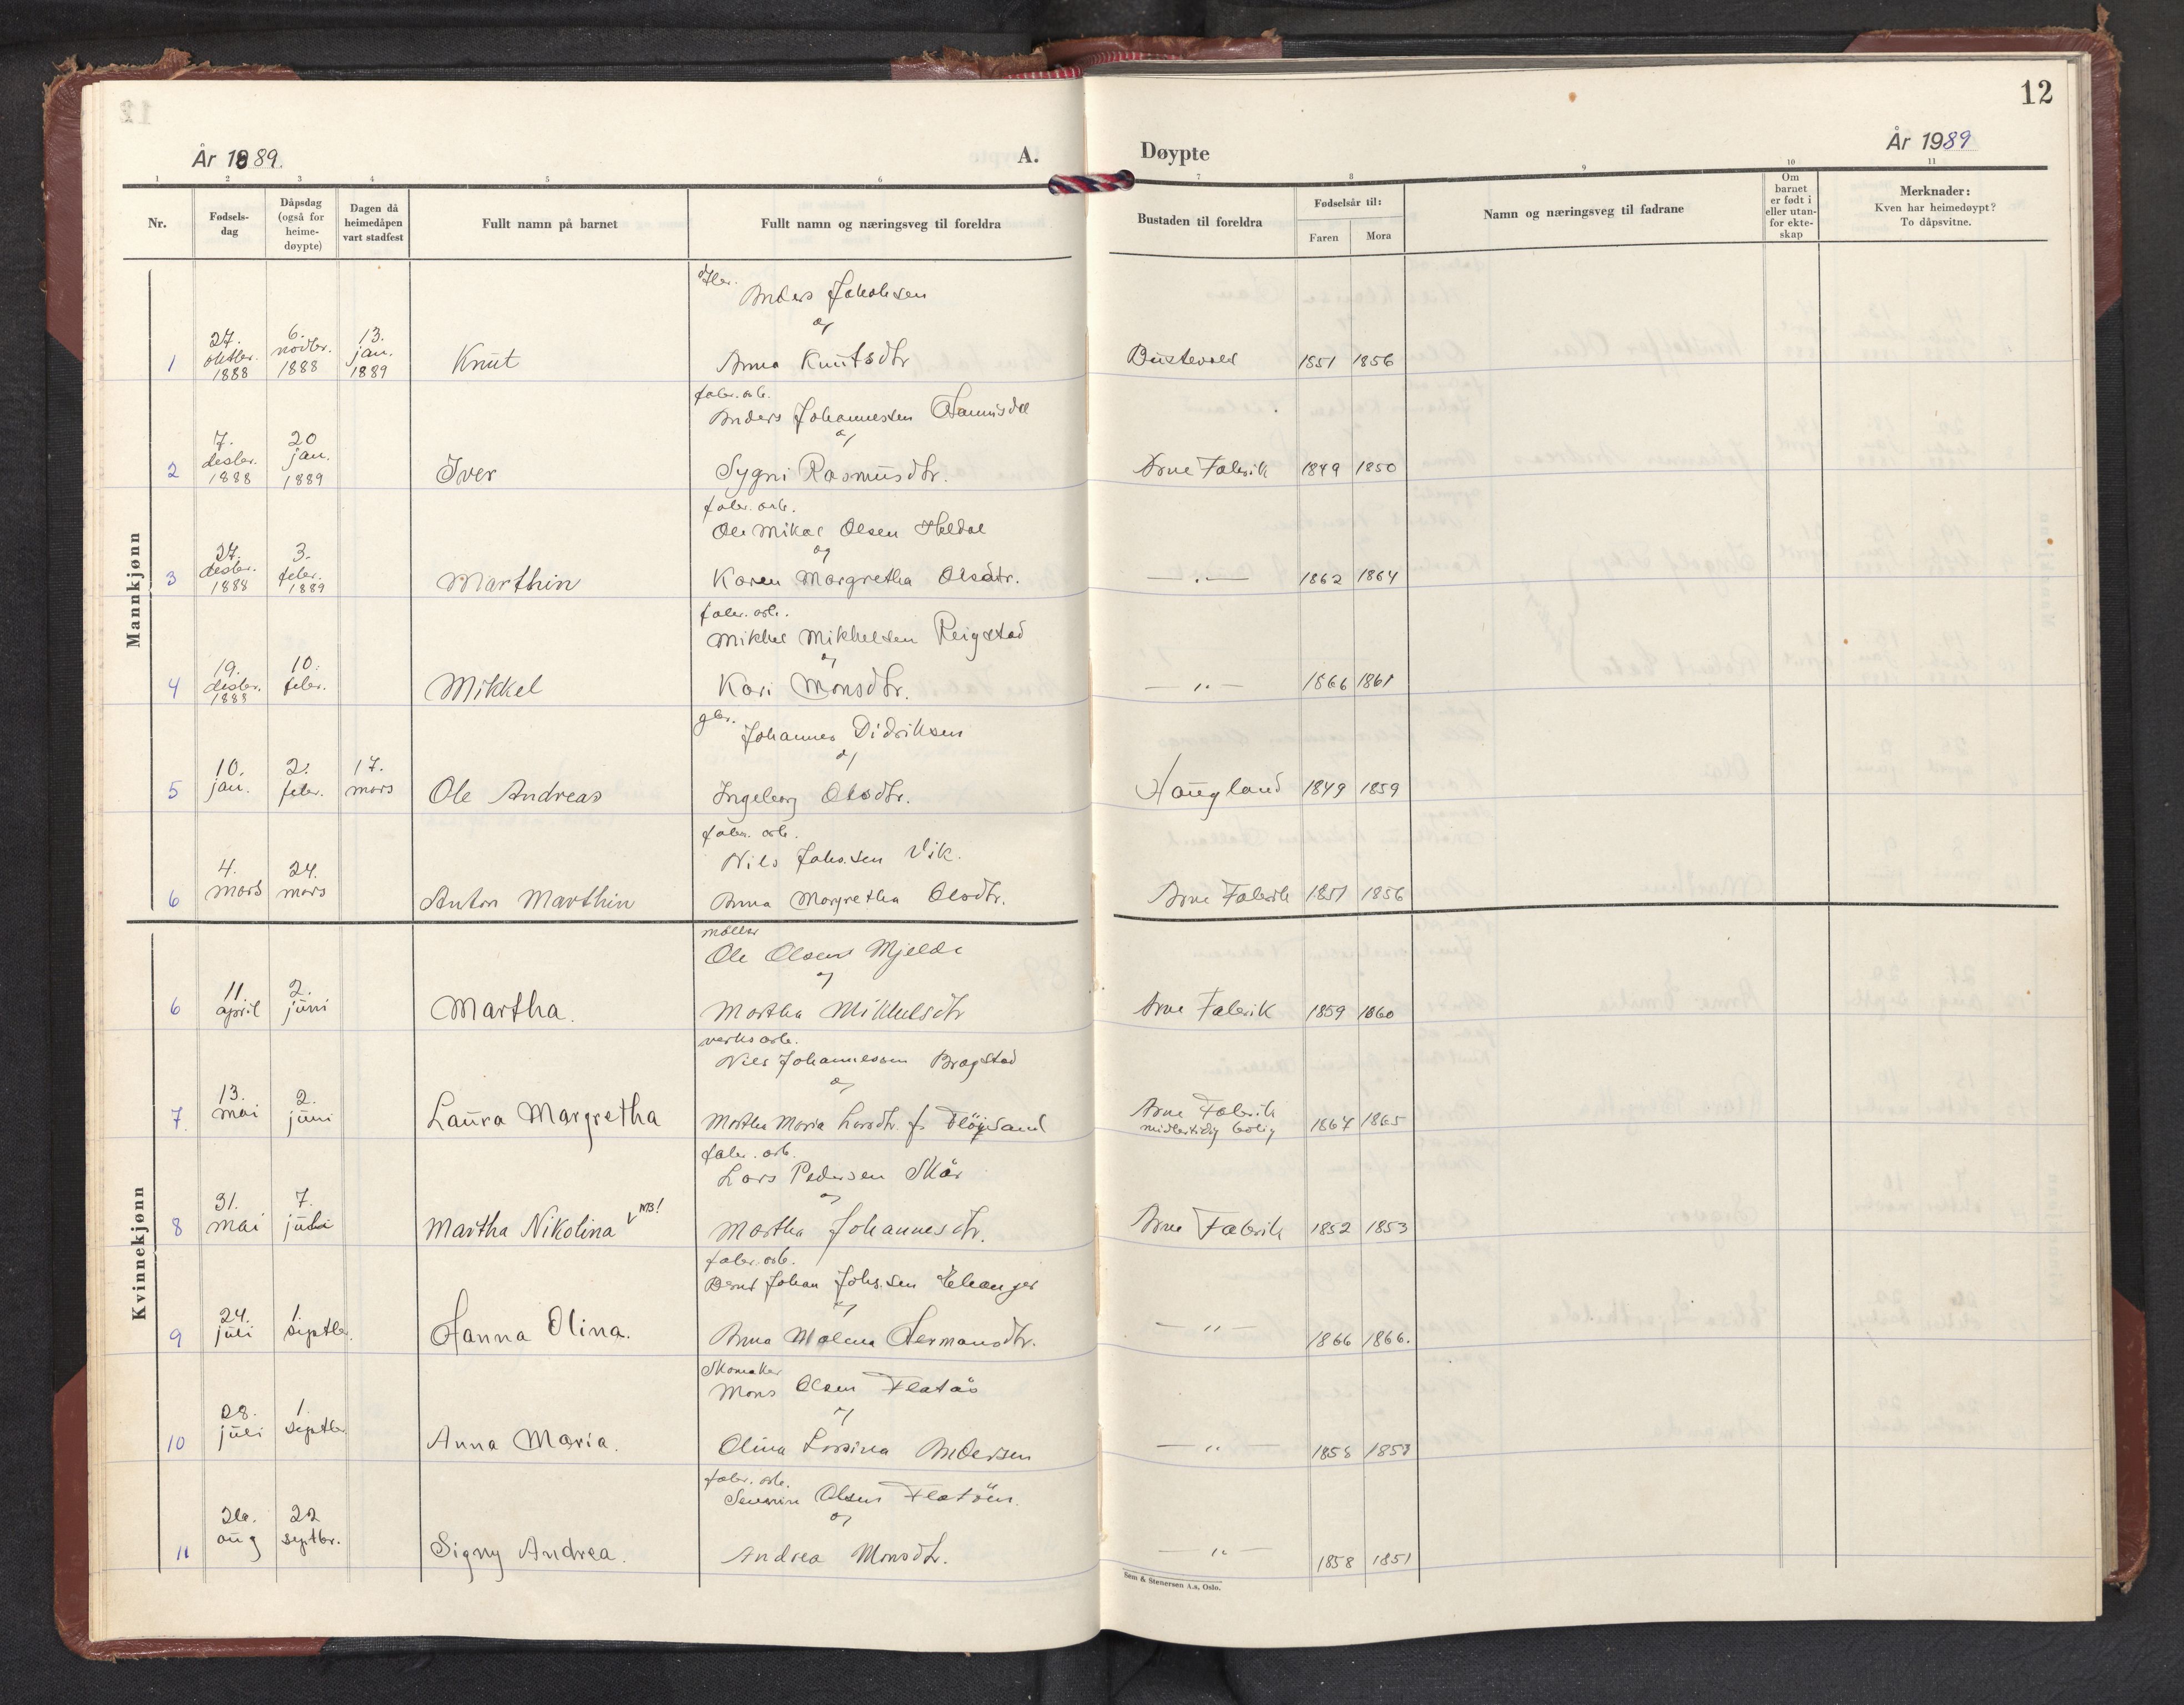 12
År 1889.
A.
Døypte
År 1989
1 2 3 4 5 6 7 8 9 10 11
Nr.
Fødsels-
dag
Dåpsdag
(også for
heime-
døypte)
Dagen då
heimedåpen
vart stadfest
Fullt namn på barnet
Fullt namn og næringsveg til foreldra
Bustaden til foreldra
Fødselsår til:
Faren Mora
Namn og næringsveg til fadrane
Om
barnet
er født i
eller utan-
for ekte-
skap
Merknader:
Kven har heimedøypt?
To dåpsvitne.
Mannkjønn
Anders Jakobsen
og
1 27. oktbr. 1888 6. novbr. 1888 13. jan. 1889 Knut Anna Knutsdtr Bustevold 1851 1856
fabr. arb.
Anders Johannessen Hannisdal
og
2 7. desbr. 1888 20 jan. 1889 Iver Sygni Rasmusdtr. Arne Fabrik 1849 1850
fabr. arb.
Ole Mikal Olsen Heldal
og
3 27. desbr. 1888 3. febr. 1889 Marthin Karen Margretha Olsdtr. — „ — 1862 1864
fabr. arb.
Mikkel Mikkelsen Reigstad
og
4 19. desbr. 1888 10. febr. Mikkel Kari Monsdtr. — „ — 1866 1861
gbr.
Johannes Didriksen
og
5 10. jan. 2. febr. 17. mars Ole Andreas Ingeborg Olsdtr. Haugland 1849 1859
fabr. arb.
Nils Johs.sen Vik.
6 4. mars 24. mars Anton Marthin Anna Margretha Olsdtr. Arne Fabrik 1851 1856
Kvinnekjønn
møller
Ole Olsen Mjelde
og
6 11 april 2. juni Martha. Martha Mikkelsdtr Arne Fabrik 1859 1860
verksarb.
Nils Johannessen Brogstad
og
7. 13. mai 2. juni Laura Margretha Martha Maria Larsdtr. f. Fløysand Arne Fabrik midlertidig bolig 1867 1865
fabr. arb.
Lars Pedersen Skår
og
8 31. mai 7. juli Martha Nikolina NB! Martha Johannesdtr. Arne Fabrik 1852 1853
fabr. arb.
Bernt Johan Johs.sen Ekanger
og
9 24. juli 1. septbr. Hanna Olina. Anna Malena Hermansdtr. — „ — 1866 1866.
Skomaker
Mons Olsen Flatås
og
10 28. juli 1. septbr Anna Maria. Olina Lovina Andersen — „ — 1858 1858
fabr. arb.
Severin Olsen Flatøen.
og
11 26. aug 22 septbr. Signy Andrea. Andrea Monsdtr. — „ — 1858 1851
Sem & Stenersen A.s, Oslo.